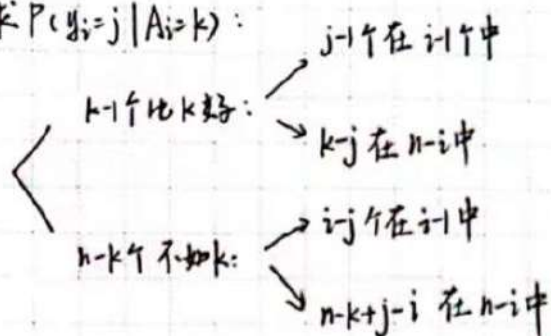 求 P(y_i=j | A_i=k) :
k-1个比k好:
j-1个在 i-1个中
k-j 在 n-i中
n-k个 不如k:
i-j 个在 i-1中
n-k+j-i 在 n-i中